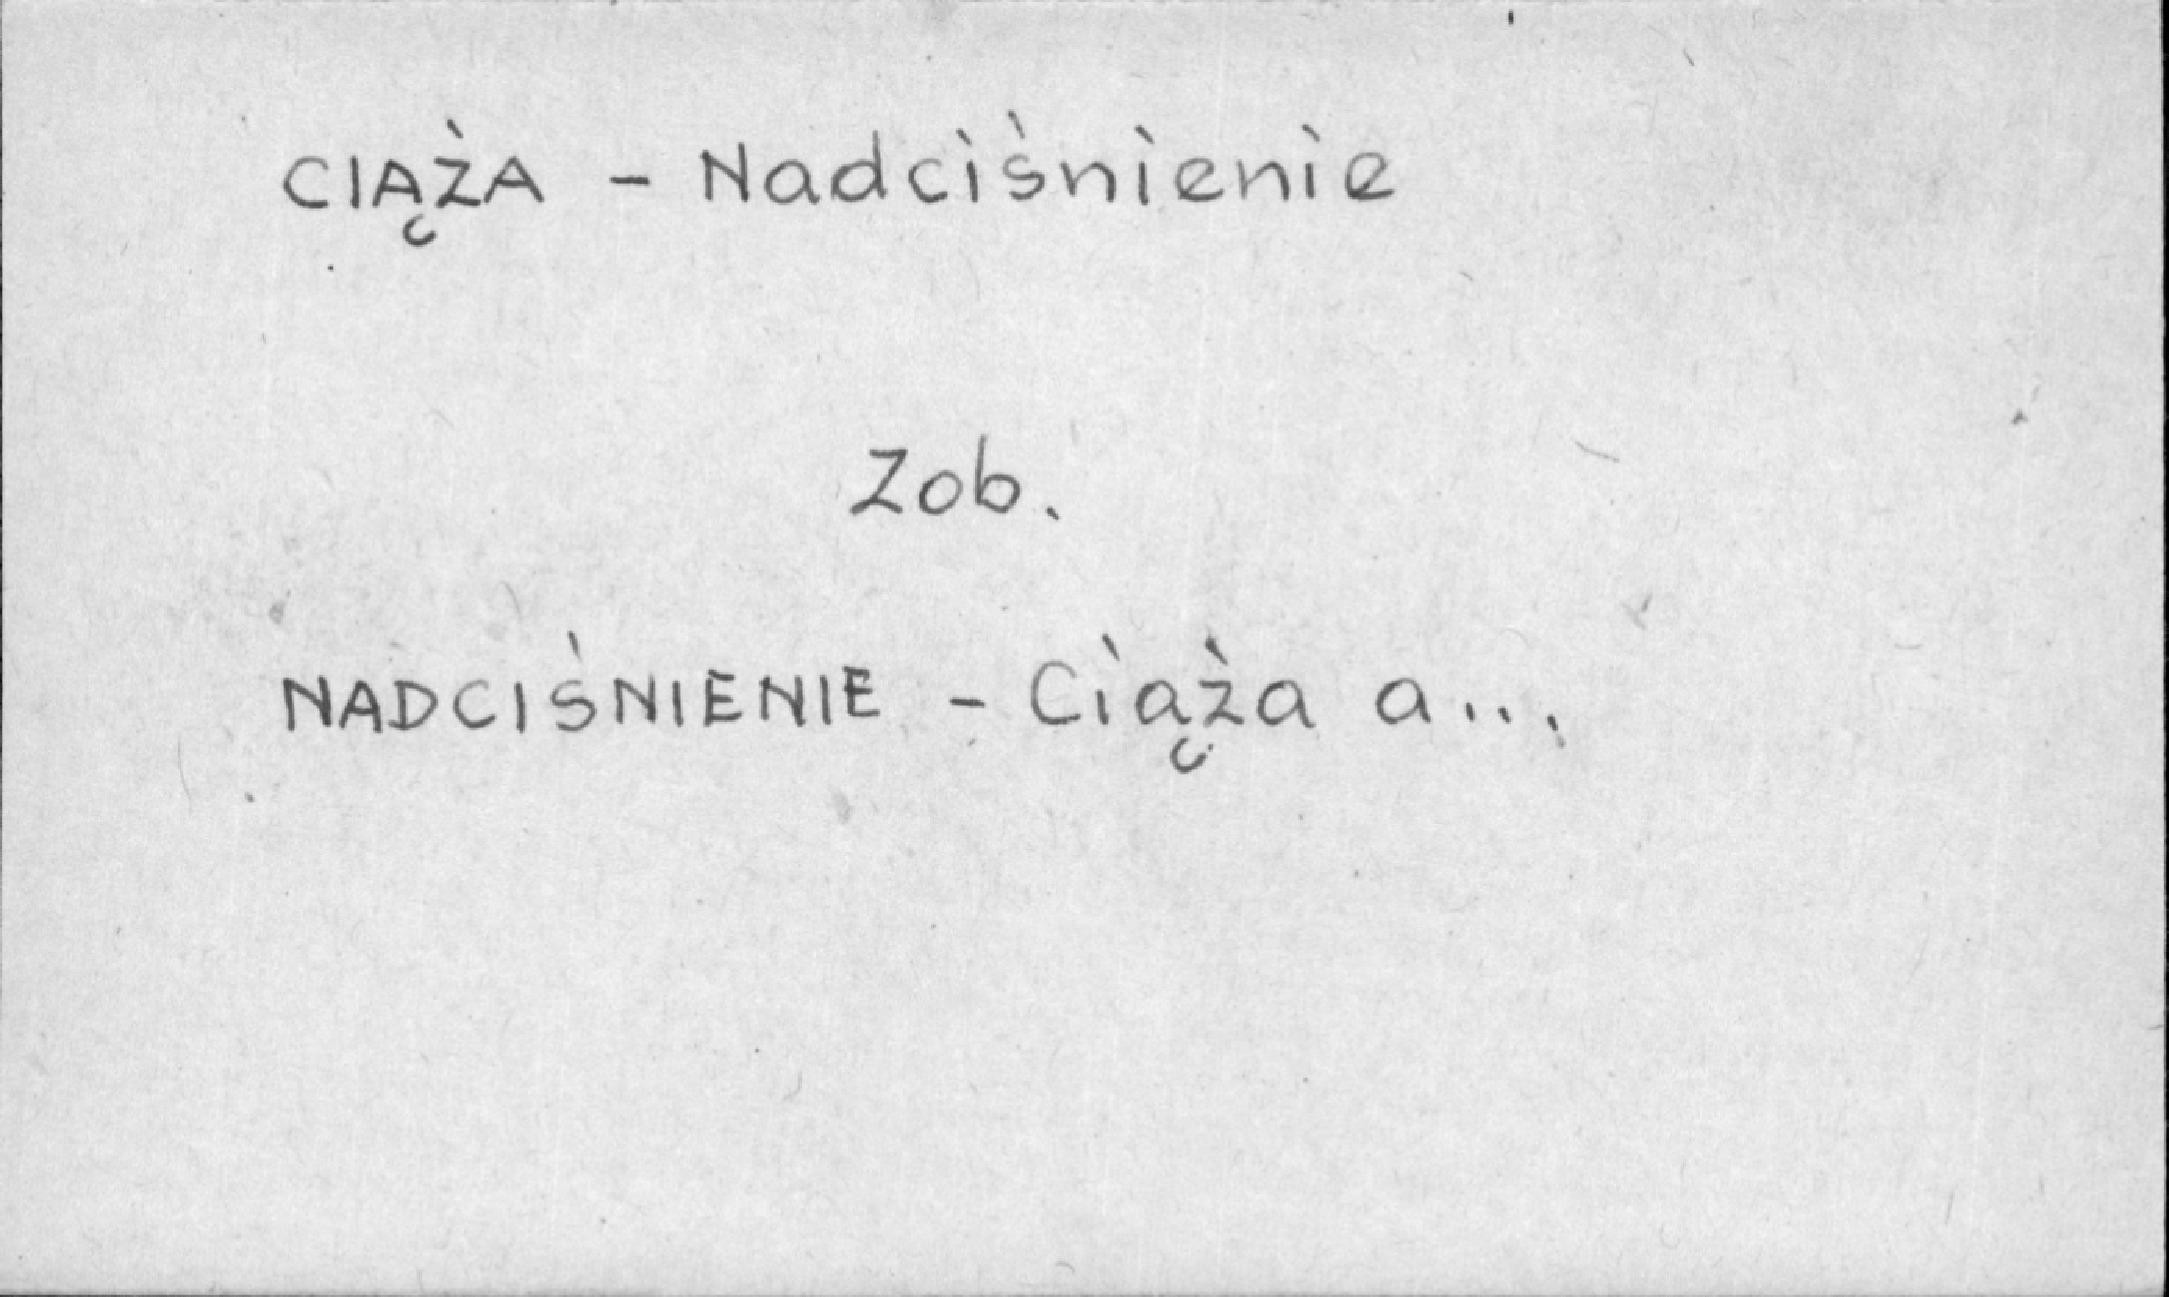 CIĄŻA - Nadciśnienie
Zob.
NADCIŚNIENIE - Ciąża a...